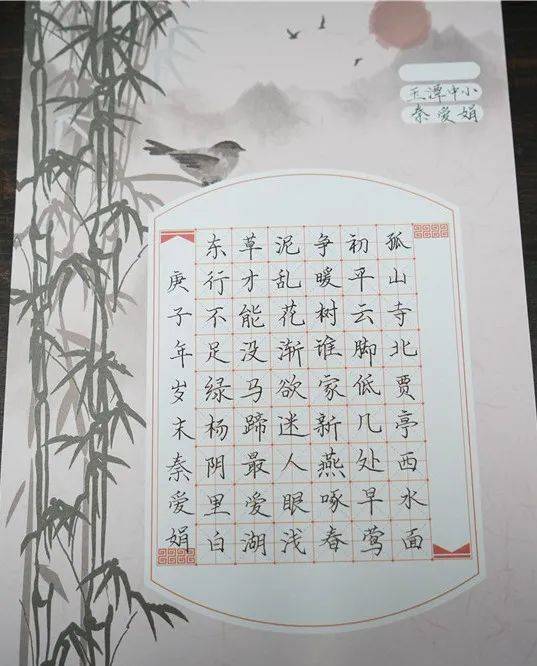 玉潭中小
秦爱娟
孤山寺北贾亭西水面
初平云脚低几处早莺
争暖树谁家新燕啄春
泥乱花渐欲迷人眼浅
草才能没马蹄最爱湖
东行不足绿杨阴里白
庚子年岁末秦爱娟